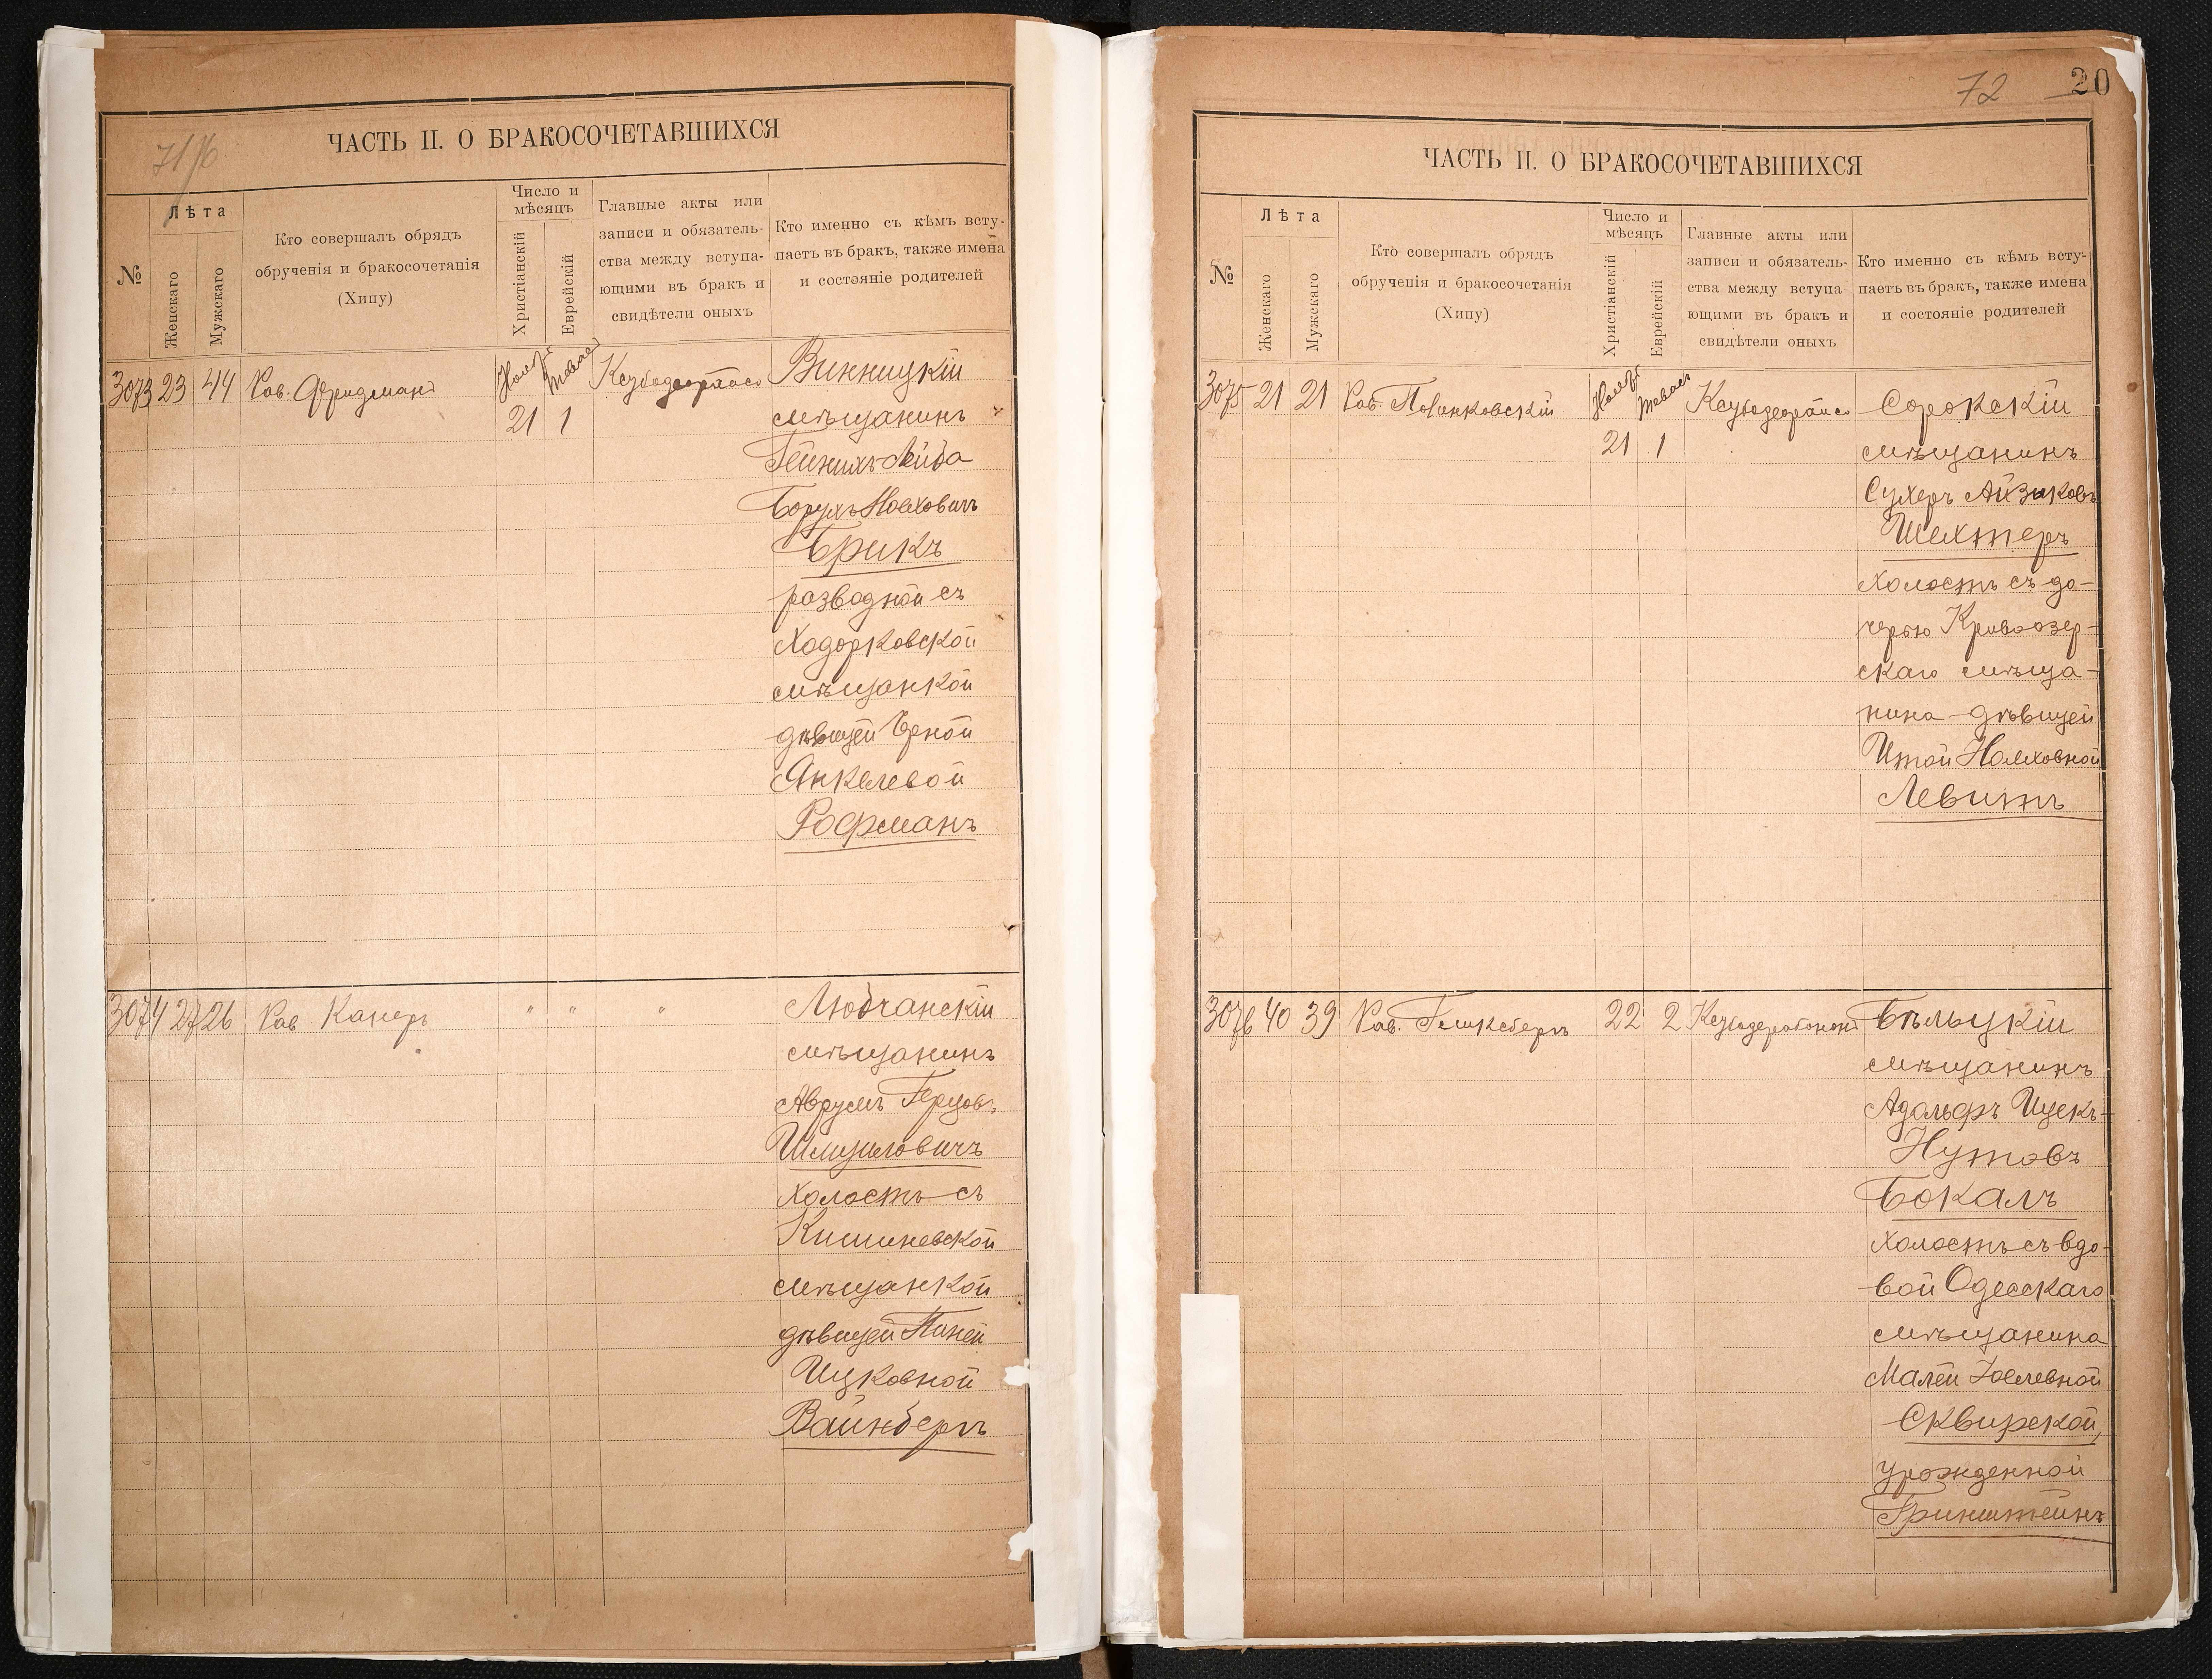 71/76
ЧАСТЬ II. О БРАКОСОЧЕТАВШИХСЯ
№
Лѣта
Женскаго
Мужскаго
Кто совершалъ обрядъ
обрученія и бракосочетанія
(Хипу)
Число и
мѣсяцъ
Христіанскій
Еврейскій
Главные акты или
записи и обязатель-
ства между вступа-
ющими въ бракъ и
свидѣтели оныхъ
Кто именно съ кѣмъ всту-
паетъ въ бракъ, также имена
и состояніе родителей
3073 23 44 Рав. Фридманъ
21 1
Винницкій
мѣщанинъ
Гейнихъ-Лейба
Борухъ Ноехович
Брикъ
разводной съ
Ходорковской
мѣщанкой
дѣвицей Эрной
Янкелевой
Рофманъ
3074 27 26 Рав Канеръ " " "
Любчанскій
мѣщанинъ
Аврумъ Герцовъ
Шмуиловичъ
холостъ съ
Кишиневской
мѣщанкой
дѣвицей Пиней
Ицковной
Вайнбергъ
72 20
ЧАСТЬ II. О БРАКОСОЧЕТАВШИХСЯ
№
Лѣта
Женскаго
Мужскаго
Кто совершалъ обрядъ
обрученія и бракосочетанія
(Хипу)
Число и
мѣсяцъ
Христіанскій
Еврейскій
Главные акты или
записи и обязатель-
ства между вступа-
ющими въ бракъ и
свидѣтели оныхъ
Кто именно съ кѣмъ всту-
паетъ въ бракъ, также имена
и состояніе родителей
3075 21 21 Рав. Полинковскій
21 1
Сорокскій
мѣщанинъ
Сухеръ Айзиковъ
Шехтеръ
холостъ съ до-
черью Кривоозер-
скаго мѣща-
нина дѣвицей
Итой Ноеховной
Левитъ
3076 40 39 Рав. Гликсбергъ 22 2
Бѣльцкій
мѣщанинъ
Адольфъ Ицекъ-
Нутовъ
Бокалъ
холостъ съ вдо-
вой Одесскаго
мѣщанина
Малей Іоелевной
Сквирской,
урожденной
Гринштейнъ